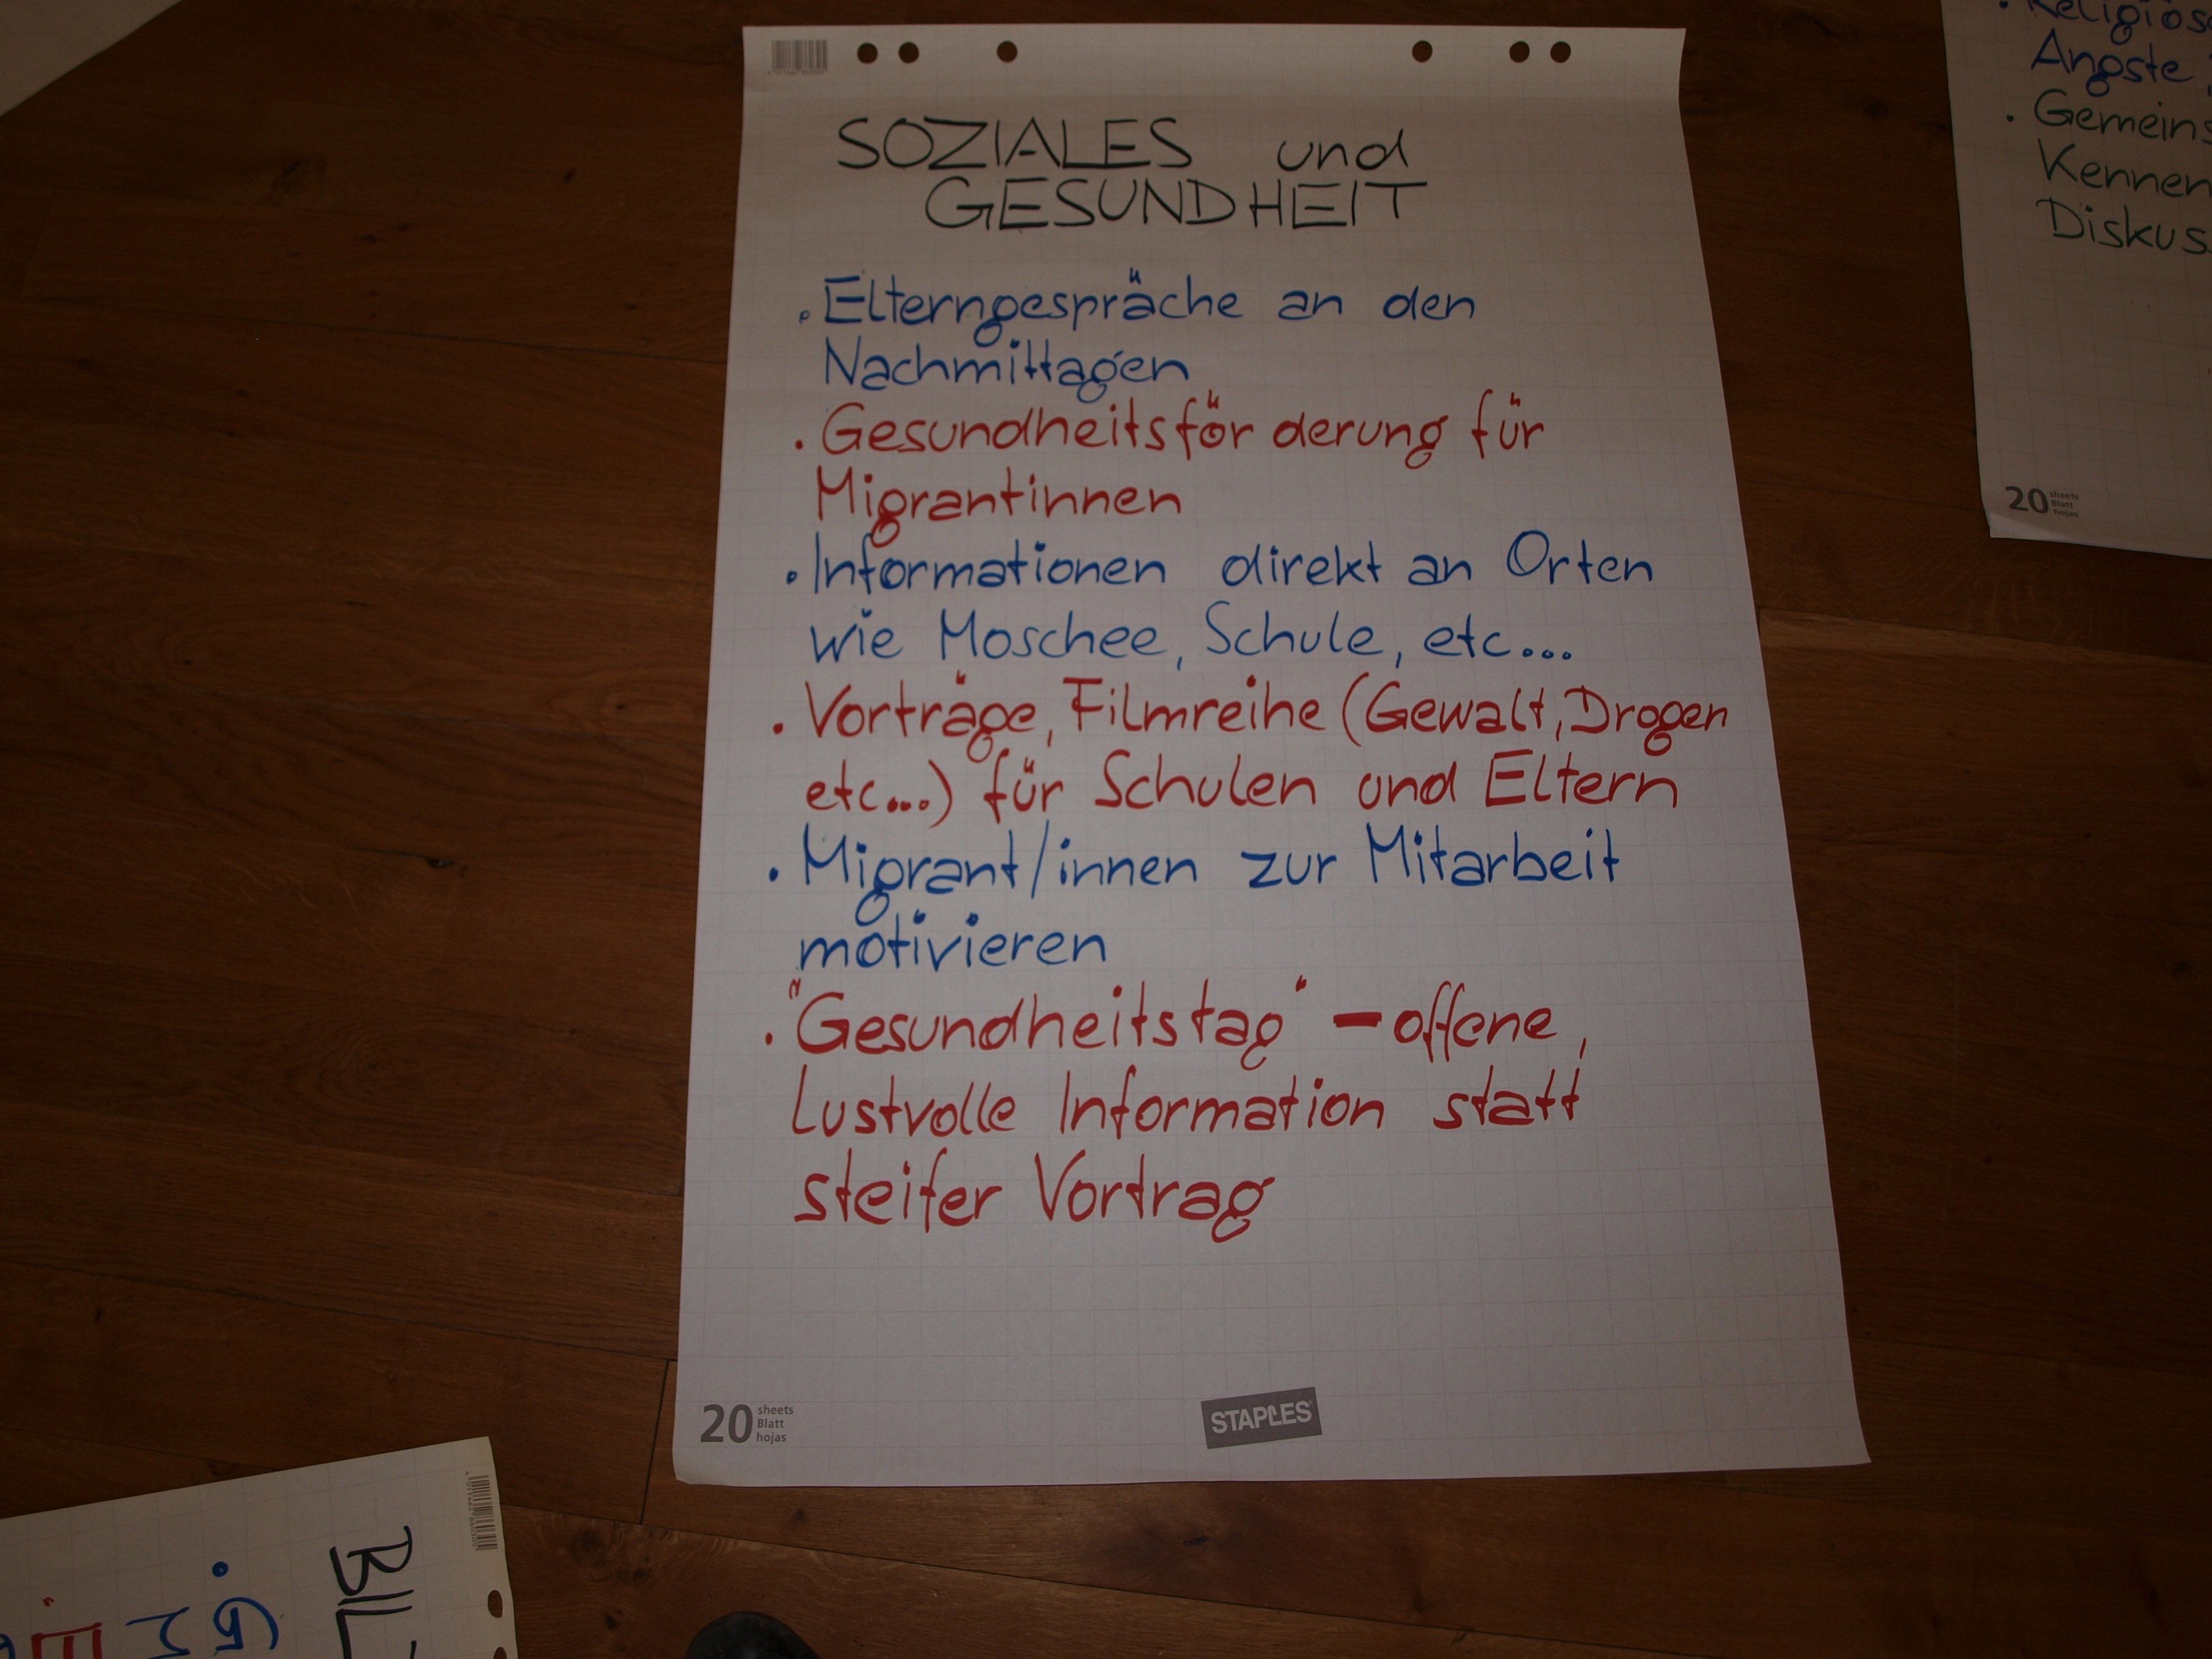 SOZIALES und
GESUNDHEIT
. Elterngespräche an den
Nachmittagen
. Gesundheitsför derung für
Migrantinnen
. Informationen direkt an Orten
wie Moschee, Schule, etc...
. Vorträge, Filmreihe (Gewalt, Drogen
etc...) für Schulen und Eltern
. Migrant/innen zur Mitarbeit
motivieren
. "Gesundheitstag" - offene,
Lustvolle Information statt
steifer Vortrag
20 sheets
Blatt
hojas
STAPLES
. Religiös
Ängste
. Gemeins
Kennen
Diskus
20 sheets
Blatt
hojas
BIL
. G
M
. E